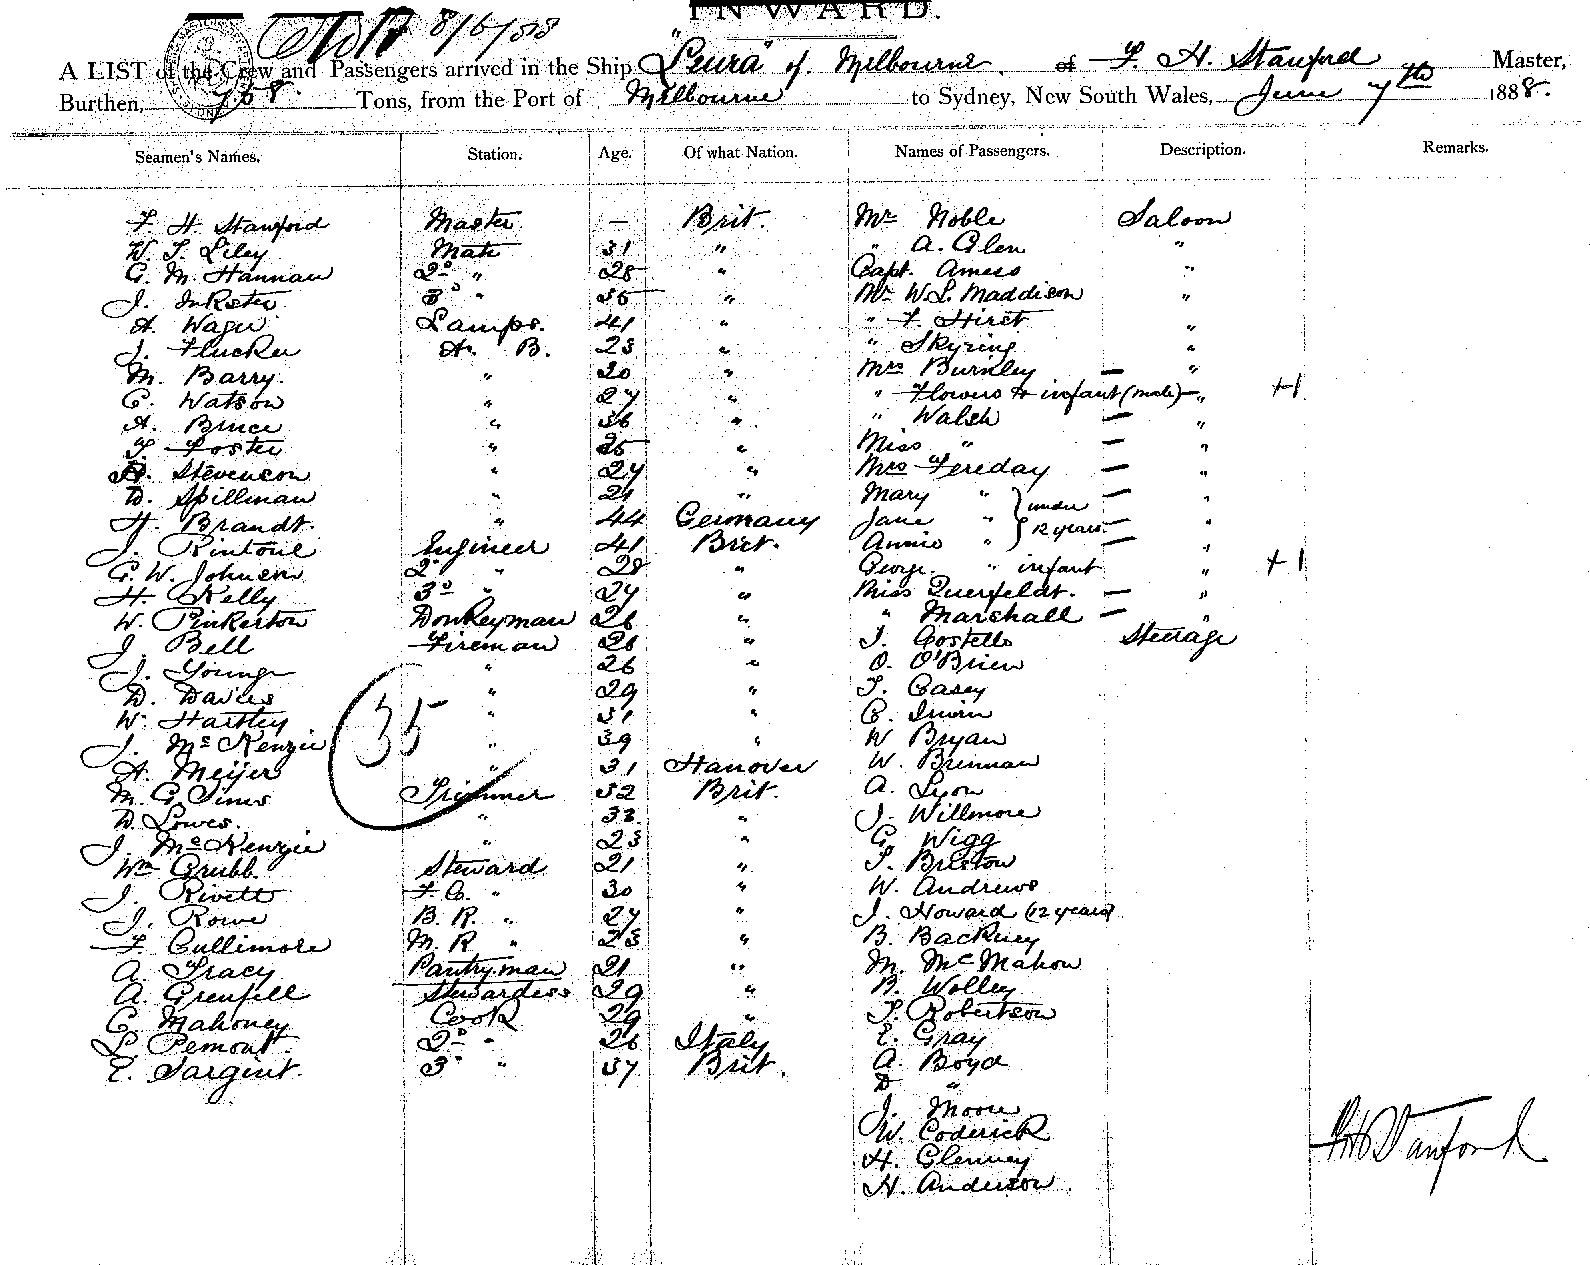 INWARD.
8/6/88
A LIST of the Crew and Passengers arrived in the Ship "Leura" of Melbourne. of F. H. Stanford Master,
Burthen, Tons, from the Port of Melbourne to Sydney, New South Wales, June 7th 1888.
Seamen's Names. Station. Age. Of what Nation. Names of Passengers. Description. Remarks.
F. H. Stanford Master — Brit. Mr Noble Saloon
W. T. Liley Mate 31 " " A. Glen "
G. M. Hannan 2° " 28 " Capt. Amess "
J. Inkster 3° " 35 " Mr W. L. Maddison "
A. Wager Lamps. 41 " " F. Hirst "
J. Flucker A. B. 23 " " Skyring "
M. Barry. " 20 " Mrs Burnley — "
C. Watson " 27 " " Flowers & infant (male) — " +1
A. Bruce " 36 " " Walsh — "
F. Foster " 25 " Miss " — "
Stevenson " 27 " Mrs Fereday — "
D. Spillman " 21 " Mary " — "
H. Brandt. " 44 Germany Jane " under 12 years — "
J. Rintoul Engineer 41 Brit. Annie " — "
G. W. Johnson 2° " 28 " George " infant " +1
H. Kelly 3° " 27 " Miss Querfeldt. — "
W. Pinkerton Donkeyman 26 " " Marshall — "
J. Bell Fireman 26 " T. Costello Steerage
J. Young " 26 " O. O'Brien
D. Davies " 29 " T. Casey
W. Hartley " 31 " C. Irwin
J. McKenzie " 39 " W Bryan
A. Meijer " 31 Hanover W. Brennan
M. G. Sims Trimmer 32 Brit. A. Lyon
D. Lowes. " 33 " J. Willmore
J. McKenzie " 23 " G. Wigg
Wm Grubb. Steward 21 " T. Breston
J. Rivett F. C. " 30 " W. Andrews
J. Rowe B. R. " 27 " J. Howard (12 years)
F. Cullimore M. R " 23 " B. Backney
A. Tracy Pantryman 21 " M. McMahon
A. Grenfell Stewardess 29 " B. Wolley
C. Mahoney Cook 29 " T. Robertson
L. Pemont. 2° " 26 Italy E. Gray
E. Sargent. 3° " 37 Brit. A. Boyd
35
D "
J. Moore
W. Coderick
H. Glenney
H. Anderson
F H Stanford